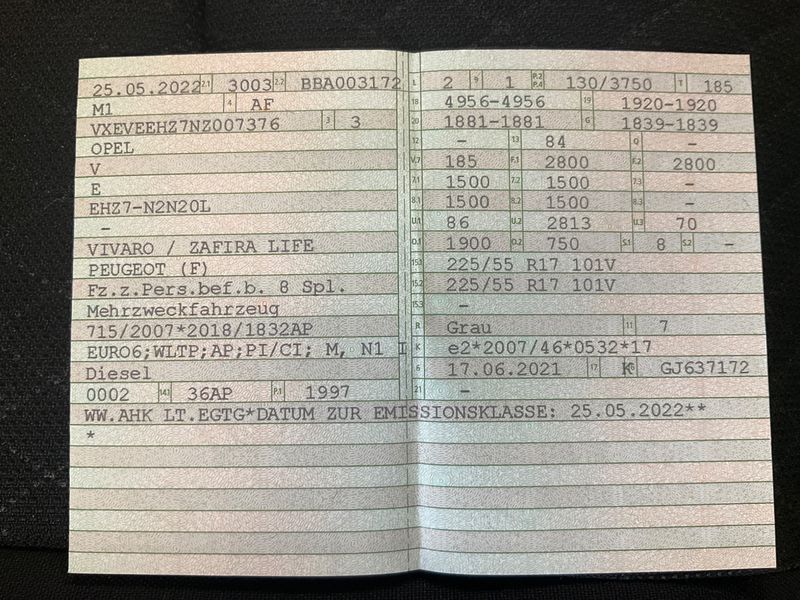 25.05.2022 2.1 3003 2.2 BBA003172
M1 4 AF
VXEVEEHZ7NZ007376 3 3
OPEL
V
E
EHZ7-N2N20L
-
VIVARO / ZAFIRA LIFE
PEUGEOT (F)
Fz.z.Pers.bef.b. 8 Spl.
Mehrzweckfahrzeug
715/2007*2018/1832AP
EURO6;WLTP;AP;PI/CI; M, N1 I
Diesel
0002 14.1 36AP P.1 1997
L 2 9 1 P.2 P.4 130/3750 T 185
18 4956-4956 19 1920-1920
20 1881-1881 G 1839-1839
12 - 13 84 Q -
V.7 185 F.1 2800 F.2 2800
7.1 1500 7.2 1500 7.3 -
8.1 1500 8.2 1500 8.3 -
U.1 86 U.2 2813 U.3 70
O.1 1900 O.2 750 S.1 8 S.2 -
15.1 225/55 R17 101V
15.2 225/55 R17 101V
15.3 -
R Grau 11 7
K e2*2007/46*0532*17
6 17.06.2021 17 K 16 GJ637172
21 -
WW.AHK LT.EGTG*DATUM ZUR EMISSIONSKLASSE: 25.05.2022**
*